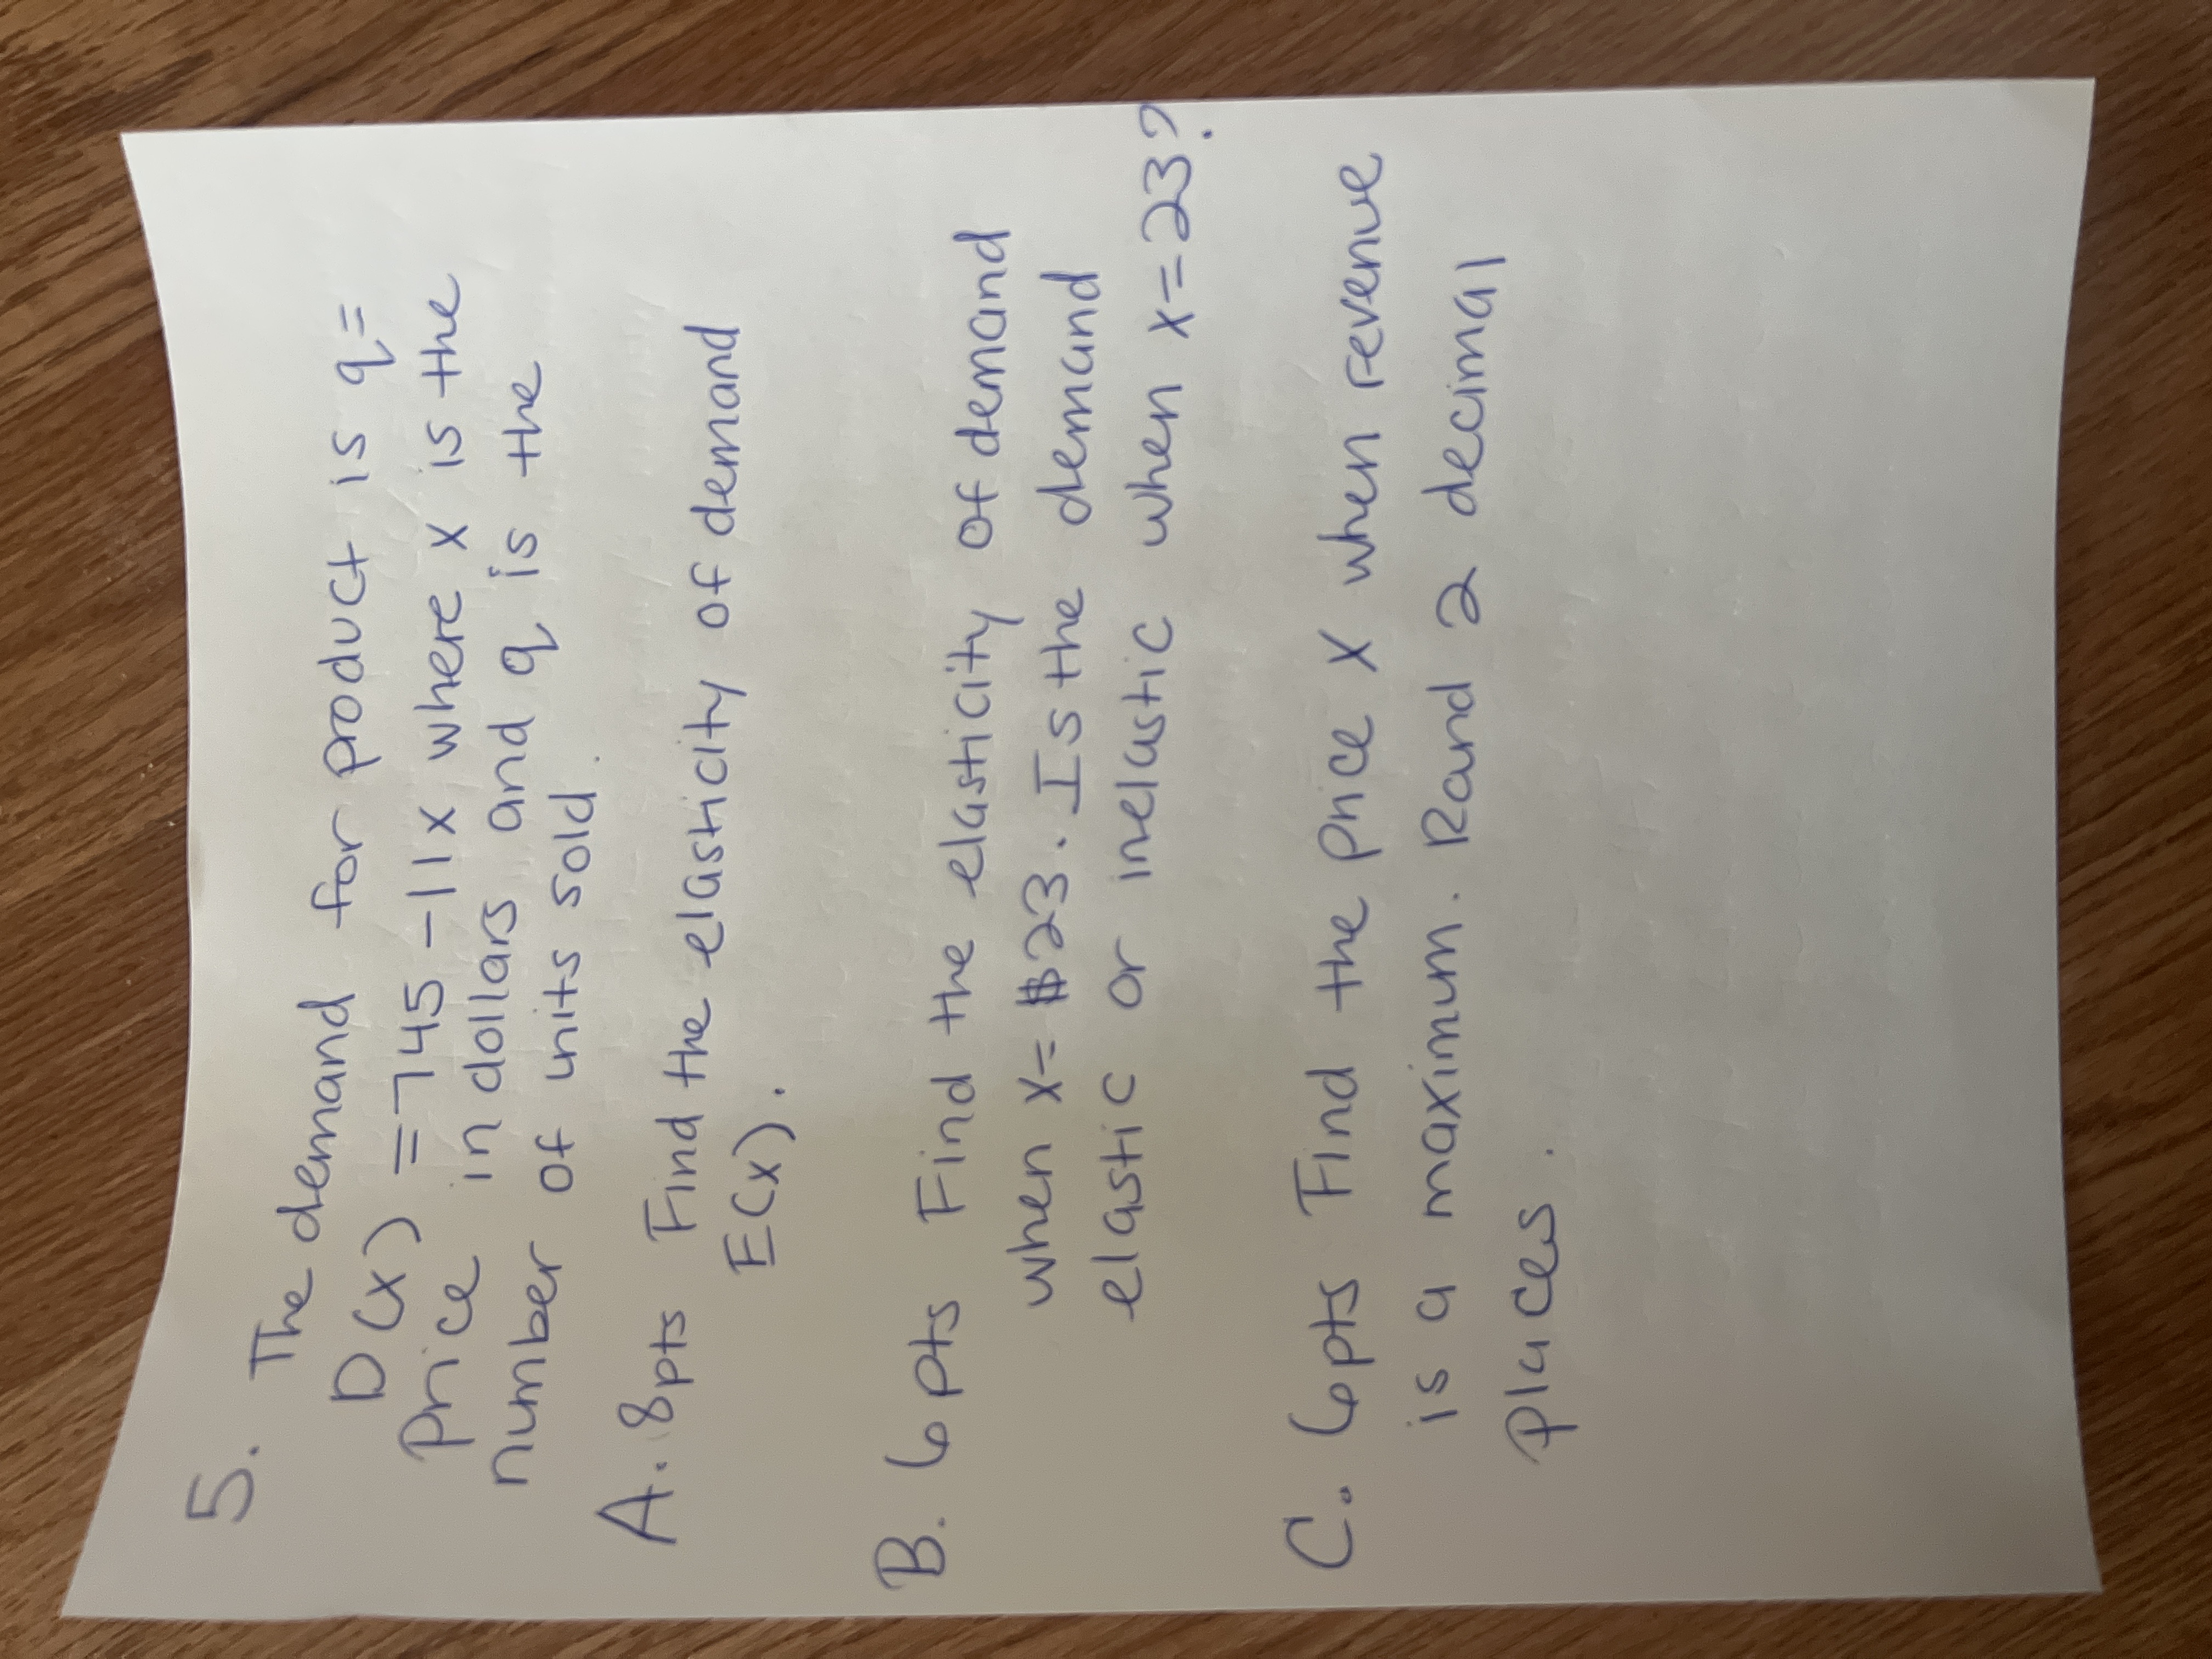 5. The demand for product is q=
D(x) = 745 - 11x where x is the
price in dollars and q is the
number of units sold.
A. 8pts Find the elasticity of demand
E(x).
B. 6pts Find the elasticity of demand
when x = $23. Is the demand
elastic or inelastic when x = 23?
C. 6pts Find the price x when revenue
is a maximum. Rand 2 decimal
places.